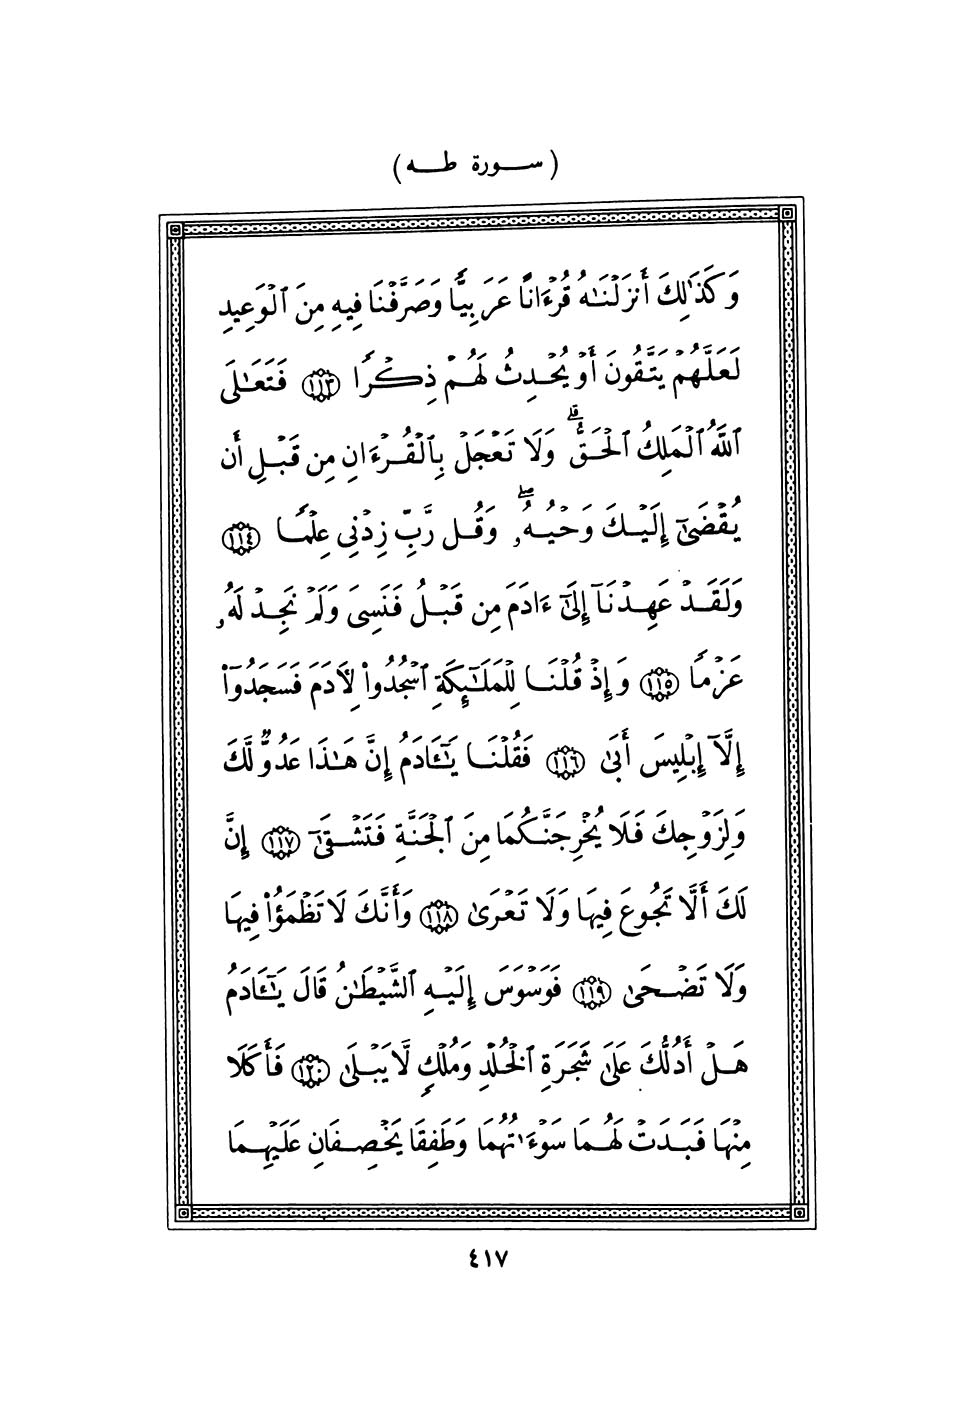 (ســورة طــه)
وَكَذَٰلِكَ أَنزَلْنَٰهُ قُرْءَانًا عَرَبِيًّا وَصَرَّفْنَا فِيهِ مِنَ ٱلْوَعِيدِ
لَعَلَّهُمْ يَتَّقُونَ أَوْ يُحْدِثُ لَهُمْ ذِكْرًا ١١٣ فَتَعَٰلَى
ٱللَّهُ ٱلْمَلِكُ ٱلْحَقُّ ۗ وَلَا تَعْجَلْ بِٱلْقُرْءَانِ مِن قَبْلِ أَن
يُقْضَىٰٓ إِلَيْكَ وَحْيُهُۥ ۖ وَقُل رَّبِّ زِدْنِى عِلْمًا ١١٤
وَلَقَدْ عَهِدْنَآ إِلَىٰٓ ءَادَمَ مِن قَبْلُ فَنَسِىَ وَلَمْ نَجِدْ لَهُۥ
عَزْمًا ١١٥ وَإِذْ قُلْنَا لِلْمَلَٰٓئِكَةِ ٱسْجُدُوا۟ لِأَدَمَ فَسَجَدُوٓا۟
إِلَّآ إِبْلِيسَ أَبَىٰ ١١٦ فَقُلْنَا يَٰٓـَٔادَمُ إِنَّ هَٰذَا عَدُوٌّ لَّكَ
وَلِزَوْجِكَ فَلَا يُخْرِجَنَّكُمَا مِنَ ٱلْجَنَّةِ فَتَشْقَىٰٓ ١١٧ إِنَّ
لَكَ أَلَّا تَجُوعَ فِيهَا وَلَا تَعْرَىٰ ١١٨ وَأَنَّكَ لَا تَظْمَؤُا۟ فِيهَا
وَلَا تَضْحَىٰ ١١٩ فَوَسْوَسَ إِلَيْهِ ٱلشَّيْطَٰنُ قَالَ يَٰٓـَٔادَمُ
هَلْ أَدُلُّكَ عَلَىٰ شَجَرَةِ ٱلْخُلْدِ وَمُلْكٍ لَّا يَبْلَىٰ ١٢٠ فَأَكَلَا
مِنْهَا فَبَدَتْ لَهُمَا سَوْءَٰتُهُمَا وَطَفِقَا يَخْصِفَانِ عَلَيْهِمَا
٤١٧